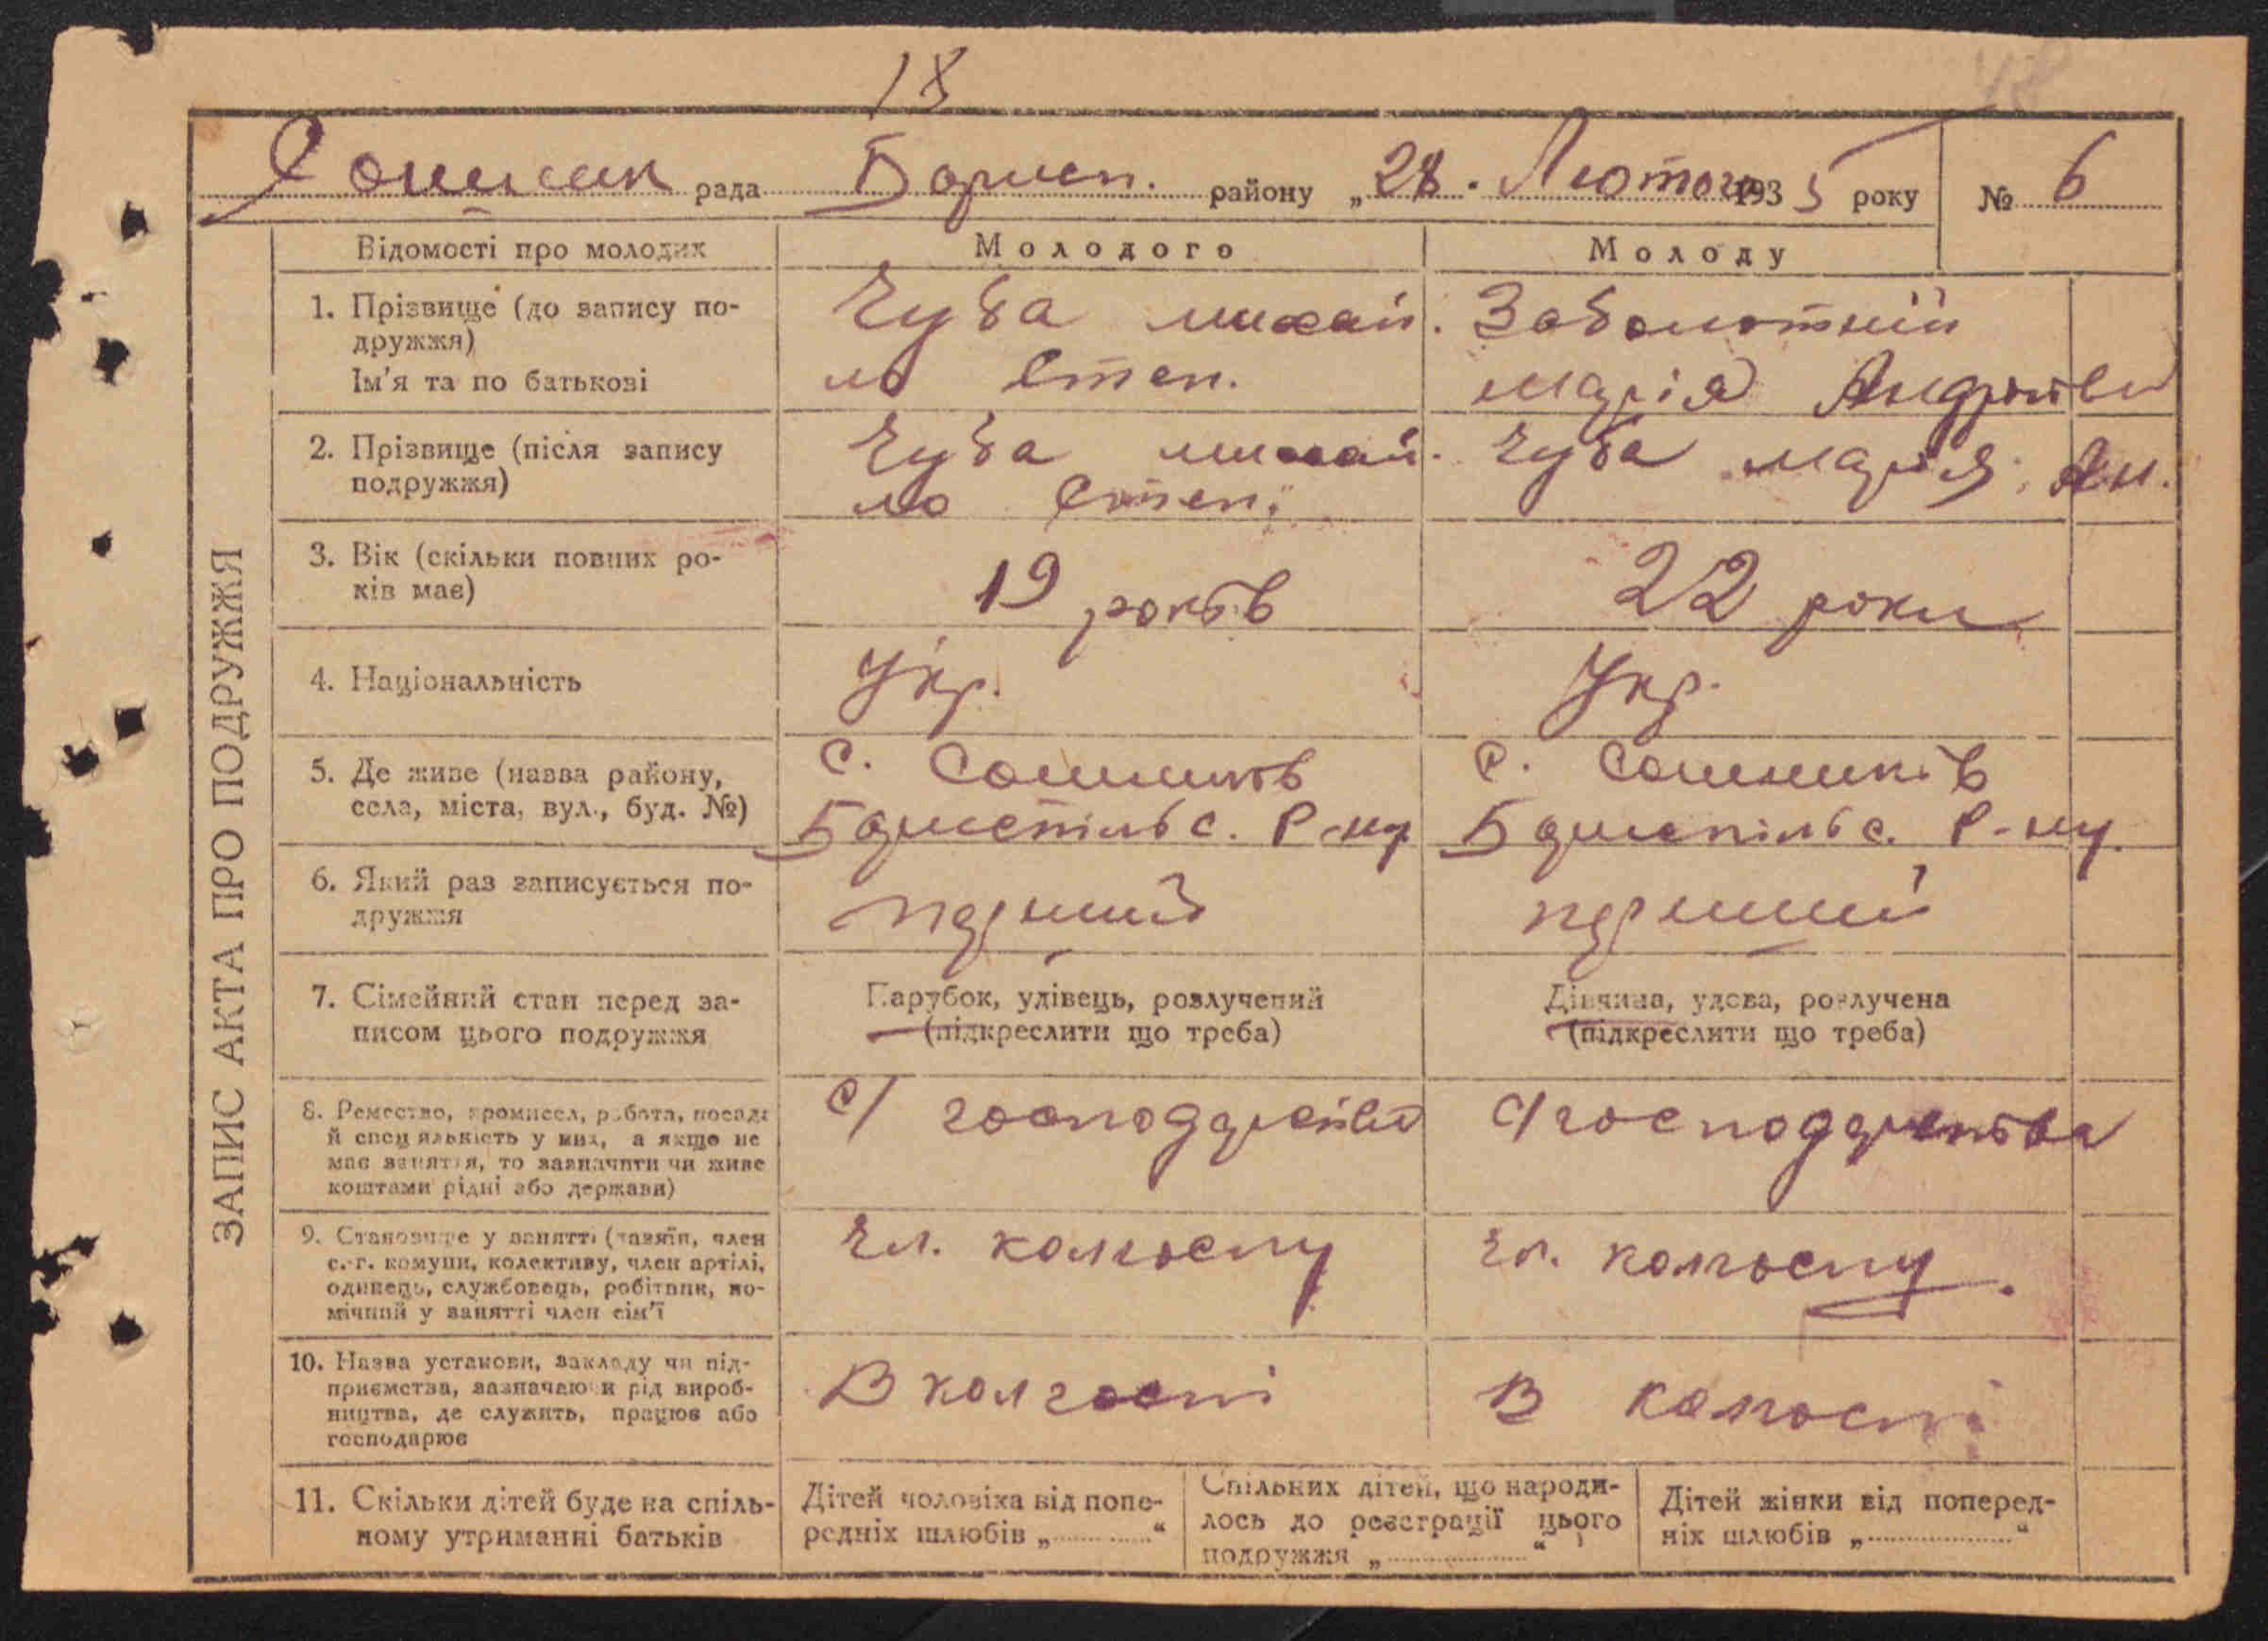 18
Сошник рада Борисп. району „28" Лютого 1935 року № 6
ЗАПИС АКТА ПРО ПОДРУЖЖЯ
Відомості про молодих Молодого Молоду
1. Прізвище (до запису по-
дружжя)
Ім'я та по батькові
Чуба михай-
ло Степ.
Заболотній
марія Андріїв
2. Прізвище (після запису
подружжя)
Чуба михай-
ло Степ.
Чуба марія Ан.
3. Вік (скільки повних ро-
ків має)
19 років
22 роки
4. Національність
Укр.
Укр.
5. Де живе (назва району,
села, міста, вул., буд. №)
с. Сошників
Бориспільс. Р-ну
с. Сошників
Бориспільс. Р-ну.
6. Який раз записується по-
дружжя
перший
перший
7. Сімейний стан перед за-
писом цього подружжя
Парубок, удівець, розлучений
(підкреслити що треба)
Дівчина, удова, розлучена
(підкреслити що треба)
8. Ремество, промисел, робота, посада
й спеціяльність у них, а якщо не
має заняття, то зазначити чи живе
коштами рідні або держави)
с/господарства
с/господарства
9. Становище у занятті (хазяїн, член
с.-г. комуни, колективу, член артілі,
одинець, службовець, робітник, по-
мічний у занятті член сім'ї
чл. колгоспу
чл. колгоспу.
10. Назва установи, закладу чи під-
приємства, зазначаючи рід вироб-
ництва, де служить, працює або
господарює
В колгоспі
В колгоспі
11. Скільки дітей буде на спіль-
ному утриманні батьків
Дітей чоловіка від попе-
редніх шлюбів „ “
Спільних дітей, що народи-
лось до реєстрації цього
подружжя „ “
Дітей жінки від поперед-
ніх шлюбів „ “